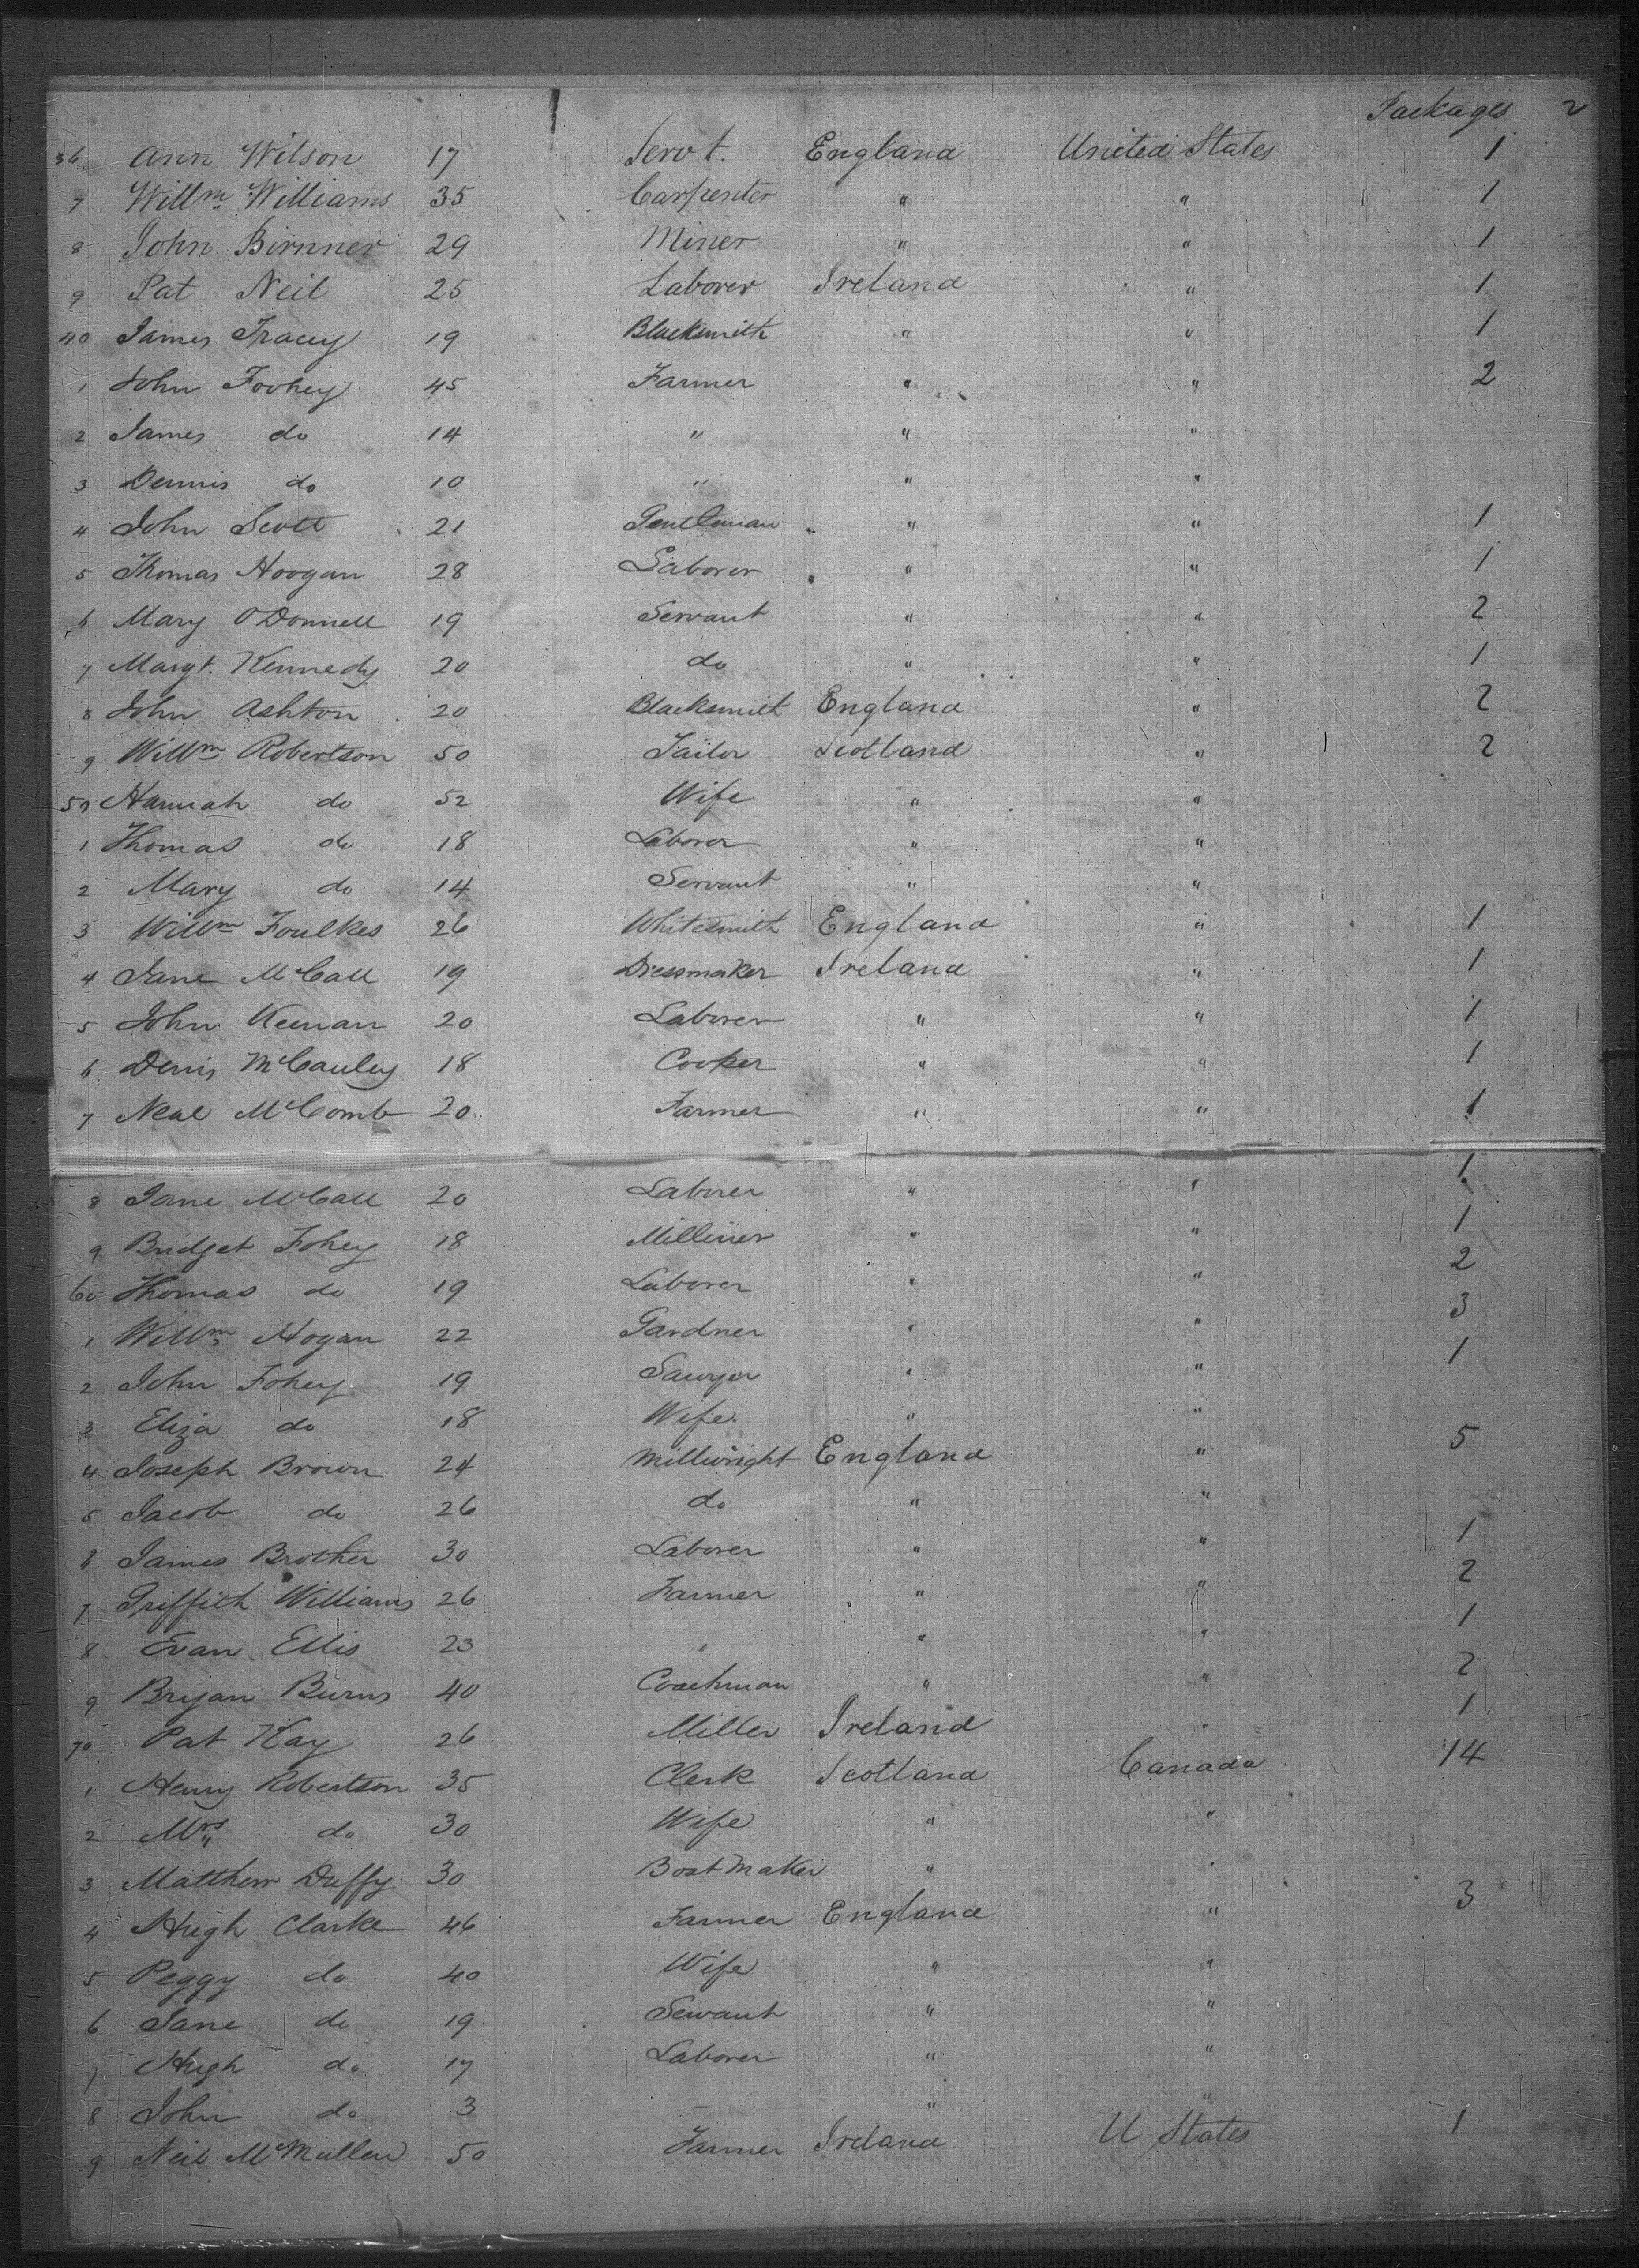 Packages 2
36 Ann Wilson 17 Servt. England United States 1
7 Willm Williams 35 Carpenter " " 1
8 John Birnner 29 Miner " " 1
9 Pat Neil 25 Laborer Ireland " 1
40 James Tracey 19 Blacksmith " " 1
1 John Foohey 45 Farmer " " 2
2 James do 14 " " "
3 Dennis do 10 " " "
4 John Scott 21 Gentleman " " 1
5 Thomas Hoogan 28 Laborer " " 1
6 Mary O'Donnell 19 Servant " " 2
7 Margt. Kennedy 20 do " " 1
8 John Ashton 20 Blacksmith England " 2
9 Willm Robertson 50 Tailor Scotland " 2
50 Hannah do 52 Wife " "
1 Thomas do 18 Laborer " "
2 Mary do 14 Servant " "
3 Willm Foulkes 26 Whitesmith England " 1
4 Jane McCall 19 Dressmaker Ireland " 1
5 John Keenan 20 Laborer " " 1
6 Denis McCauley 18 Cooper " " 1
7 Neal McComb 20 Farmer " " 1
8 Jane McCall 20 Laborer " " 1
9 Bridget Fohey 18 Milliner " " 1
60 Thomas do 19 Laborer " " 2
1 Willm Hogan 22 Gardner " " 3
2 John Fohey 19 Sawyer " " 1
3 Eliza do 18 Wife " "
4 Joseph Brown 24 Millwright England " 5
5 Jacob do 26 do " "
6 James Brother 30 Laborer " " 1
7 Griffith Williams 26 Farmer " " 2
8 Evan Ellis 23 " " " 1
9 Bryan Burns 40 Coachman " " 2
70 Pat Kay 26 Miller Ireland " 1
1 Henry Robertson 35 Clerk Scotland Canada 14
2 Mrs do 30 Wife " "
3 Matthew Duffy 30 Boat Maker " "
4 Hugh Clarke 46 Farmer England " 3
5 Peggy do 40 Wife " "
6 Jane do 19 Servant " "
7 Hugh do 17 Laborer " "
8 John do 3 – " "
9 Neil McMullen 50 Farmer Ireland U States 1